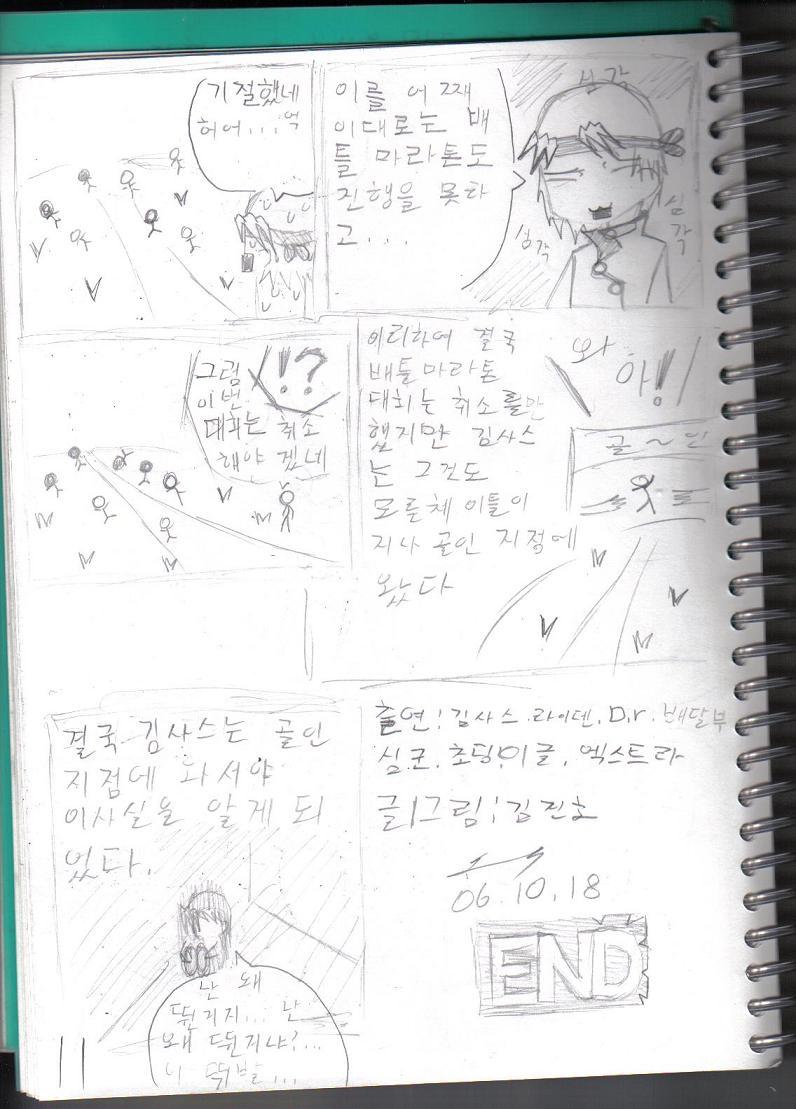 기절했네
허어...억
이를 어째
이대로는 배
틀 마라톤도
진행을 못하
고...
심각
심각
심각
그럼
이번
대회는 취소
해야 겠네
!?
이리하여 결국
배틀마라톤
대회는 취소를만
했지만 김사스
는 그것도
모른체 이틀이
지나 골인 지점에
왔다
와
아!
골~인
결국 김사스는 골인
지점에 와서야
이사실을 알게 되
었다.
난 왜
뛴거지... 난
왜 뛴거냐?...
출연:김사스.라이덴.D.r.배달부
심군.초딩이글.엑스트라
글|그림:김진호
06.10.18
END
11